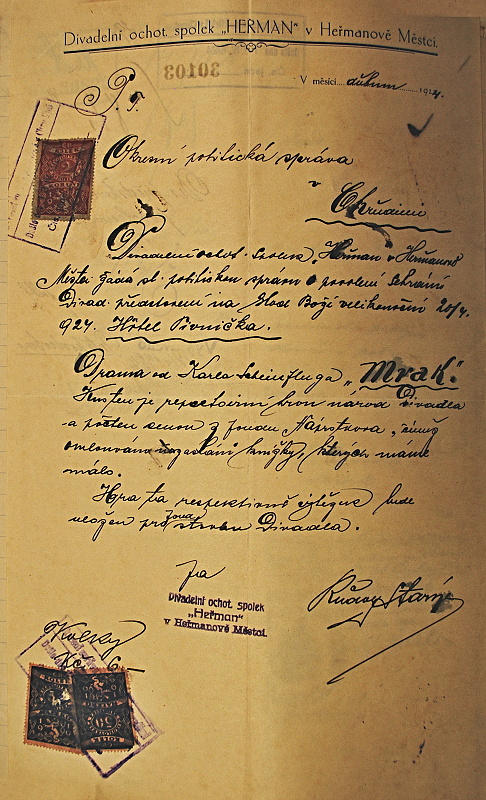 Divadelní ochot. spolek „HEŘMAN" v Heřmanově Městci.
30103
V měsíci dubnu 1924.
P. T.
Okresní politická správa
v
Chrudimi
Divadelní ochot. Spolek „Heřman v Heřmanově
Městci žádá sl. politickou správu o povolení Sehrání
Divad. představení na Hod Boží velikonoční 20/4.
924. Hôtel Pivnička.
Drama od Karla Scheinpfluga „Mrak."
Kus ten je repertoirní národ Divadla
a poctěn cenou z fondu Náprstkova, čímž
knížky, kterých máme
málo.
Hra ta respektivně výtěžek bude
uložen pro fond stavbu Divadla.
Za
Divadelní ochot. spolek
„Heřman"
v Heřmanově Městci.
Starý
Kolky
Kč 6–